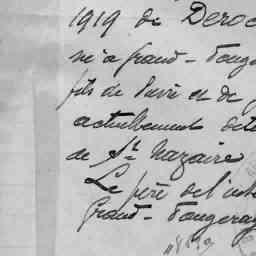 1919 de Deroc
né à grand-Fouge
fils de Pierre et de
actuellement déte
de St. Nazaire
Le père de l'inte
Grand-Fougeray